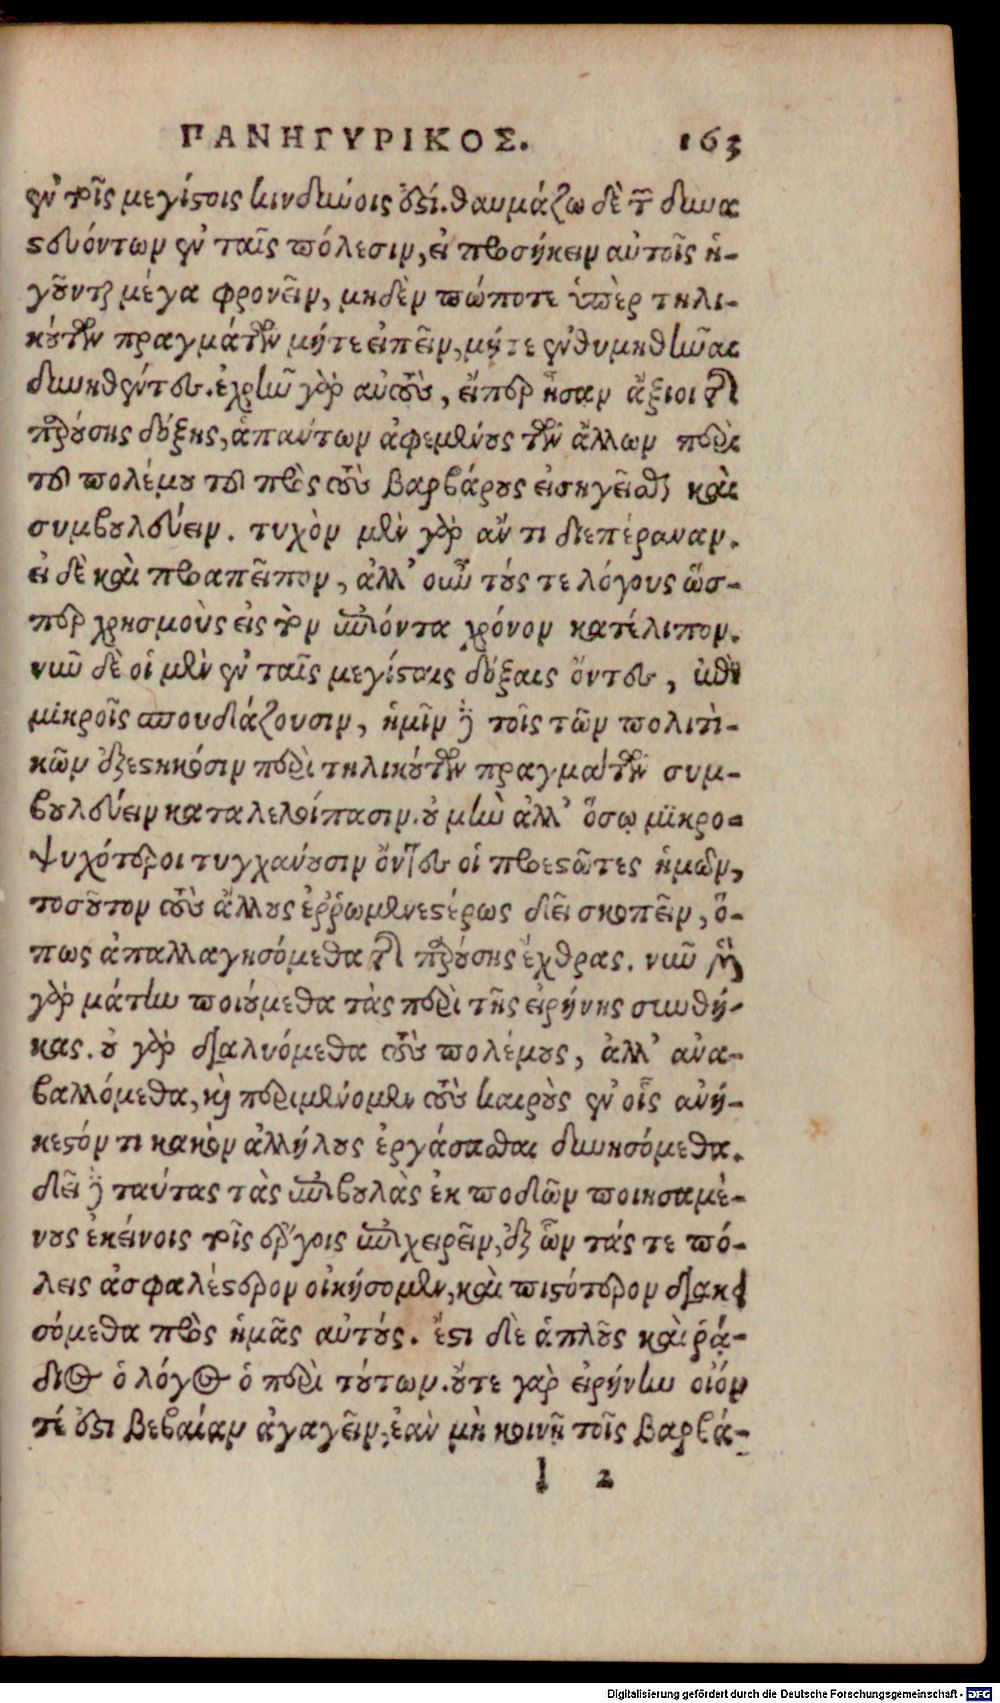 ΠΑΝΗΓΥΡΙΚΟΣ. 163
ἐν τοῖς μεγίστοις κινδύνοις ἐστί. θαυμάζω δὲ τῶν δυνα
στευόντων ἐν ταῖς πόλεσιν, εἰ προσήκειν αὐτοῖς ἡ-
γοῦνται μέγα φρονεῖν, μηδὲν πώποτε ὑπὲρ τηλι-
κούτων πραγμάτων μήτε εἰπεῖν, μήτε ἐνθυμηθῆναι
δυνηθέντες. ἐχρῆν γὰρ αὐτοὺς, εἴπερ ἦσαν ἄξιοι τῆς
παρούσης δόξης, ἁπάντων ἀφεμένους τῶν ἄλλων περὶ
τοῦ πολέμου τοῦ πρὸς τοὺς βαρβάρους εἰσηγεῖσθαι καὶ
συμβουλεύειν. τυχὸν μὲν γὰρ ἄν τι διεπέραναν.
εἰ δὲ καὶ προαπεῖπον, ἀλλ' οὖν τούς τε λόγους ὥσ-
περ χρησμοὺς εἰς τὸν ἐπιόντα χρόνον κατέλιπον.
νῦν δὲ οἱ μὲν ἐν ταῖς μεγίσταις δόξαις ὄντες, ἐπὶ
μικροῖς σπουδάζουσιν, ἡμῖν δὲ τοῖς τῶν πολιτι-
κῶν ἐξεστηκόσιν περὶ τηλικούτων πραγμάτων συμ-
βουλεύειν καταλελοίπασιν. οὐ μὴν ἀλλ' ὅσῳ μικρο-
ψυχότεροι τυγχάνουσιν ὄντες οἱ προεστῶτες ἡμῶν,
τοσοῦτον τοὺς ἄλλους ἐῤῥωμενεστέρως δεῖ σκοπεῖν, ὅ-
πως ἀπαλλαγησόμεθα τῆς παρούσης ἔχθρας. νῦν μὲν
γὰρ μάτην ποιούμεθα τὰς περὶ τῆς εἰρήνης συνθή-
κας. οὐ γὰρ διαλυόμεθα τοὺς πολέμους, ἀλλ' ἀνα-
βαλλόμεθα, καὶ περιμένομεν τοὺς καιρὸυς ἐν οἷς ἀνή-
κεστόν τι κακὸν ἀλλήλους ἐργάσασθαι δυνησόμεθα.
δεῖ δὲ ταύτας τὰς ἐπιβουλὰς ἐκ ποδῶν ποιησαμέ-
νους ἐκείνοις τοῖς ἔργοις ἐπιχειρεῖν, ἐξ ὧν τάς τε πό-
λεις ἀσφαλέστερον οἰκήσομεν, καὶ πιστότερον διακει
σόμεθα πρὸς ἡμᾶς αὐτούς. ἔστι δὲ ἁπλοῦς καὶ ῥᾴ-
διος ὁ λόγος ὁ περὶ τούτων. οὔτε γὰρ εἰρήνην οἷόν
τέ ἐστι βεβαίαν ἀγαγεῖν, ἐὰν μὴ κοινῇ τοῖς βαρβά-
l 2
Digitalisierung gefördert durch die Deutsche Forschungsgemeinschaft - DFG